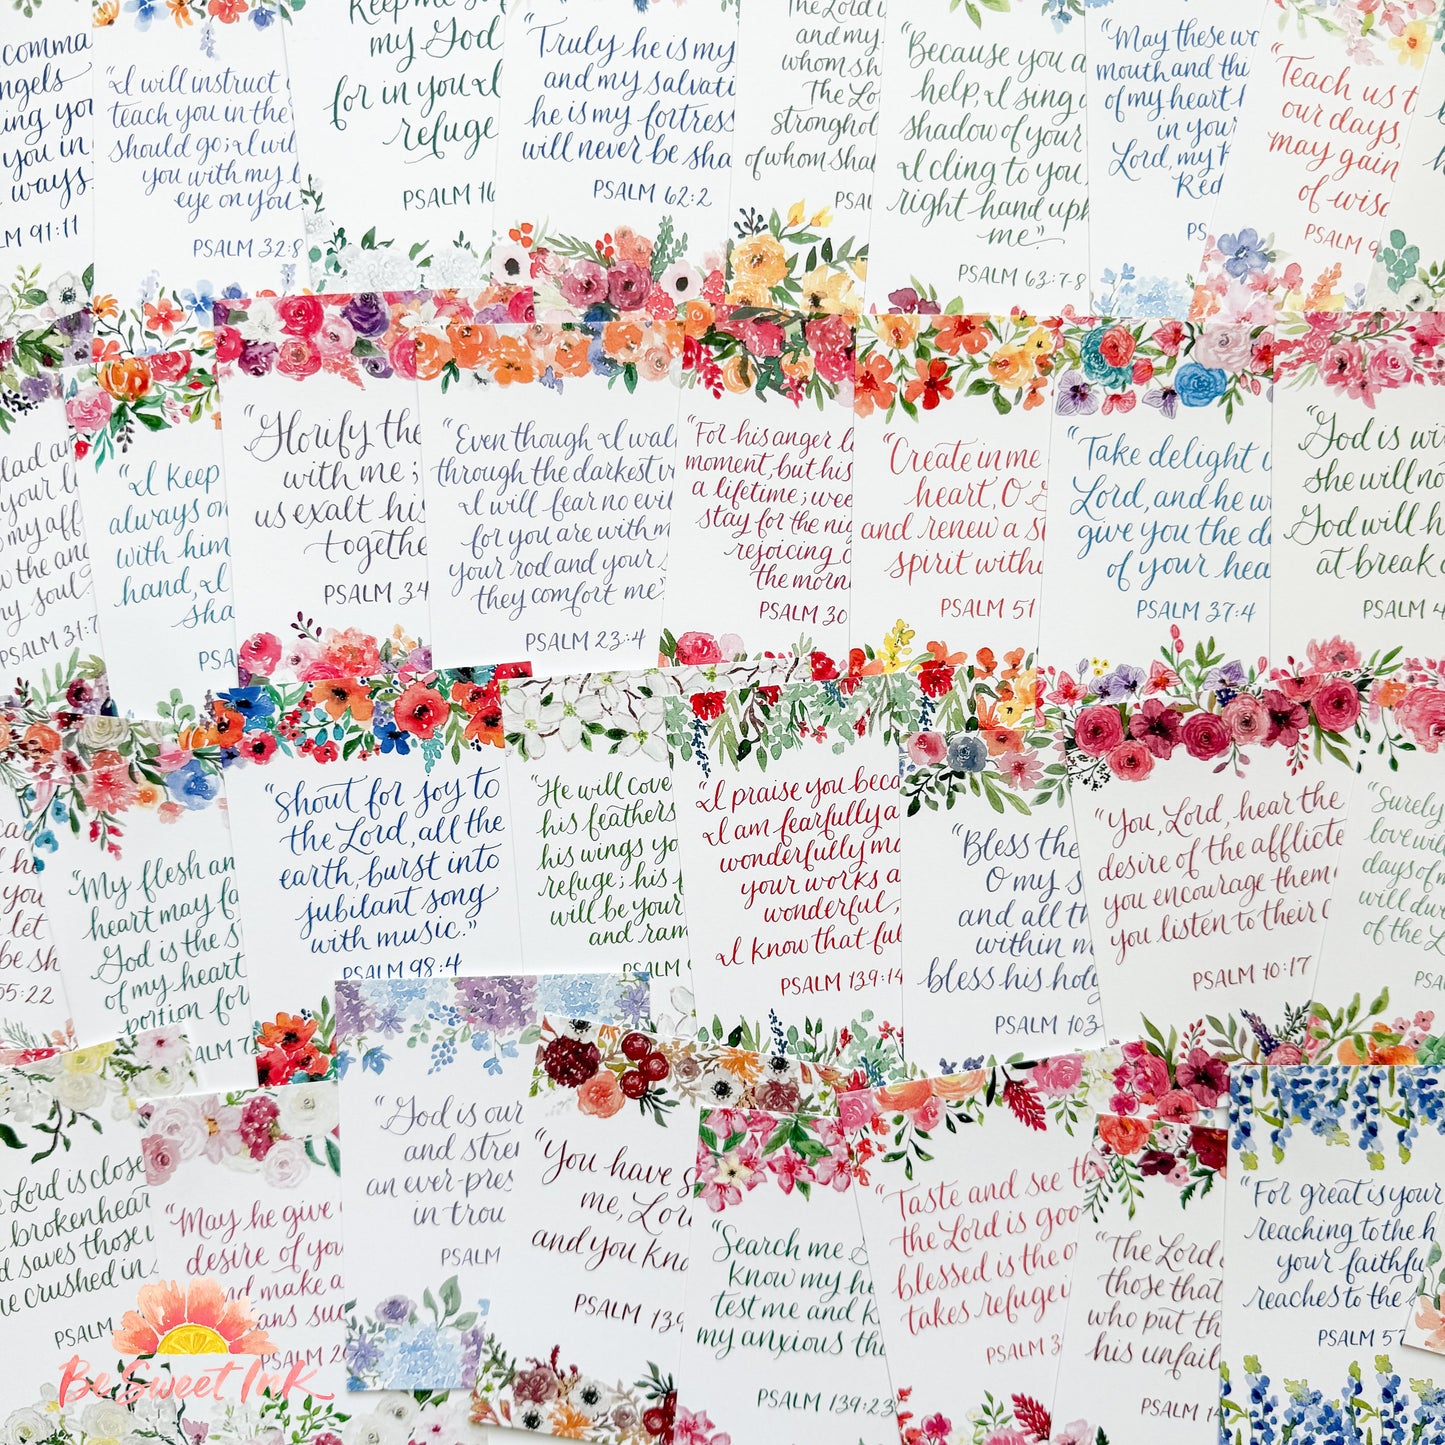 comma
ngels
ing yo
you in
ways.
LM 91:11
"I will instruct
teach you in the
should go; I wil
you with my l
eye on you
PSALM 32:8
Keep me
my God
for in you I
refuge
PSALM 16
"Truly he is my
and my salvati
he is my fortress
will never be sha
PSALM 62:2
The Lord i
and my
whom sh
The Lo
stronghol
of whom shal
PSAL
"Because you a
help, I sing
shadow of your
I cling to you
right hand uph
me."
PSALM 63:7-8
"May these wo
mouth and thi
of my heart
in your
Lord, my R
Red
PS
"Teach us t
our days,
may gain
of wisd
PSALM 9
lad an
your l
my aff
w the an
my soul."
PSALM 31:7
"I keep
always on
with him
hand, I
sha
PSA
"Glorify the
with me;
us exalt his
togethe
PSALM 34
"Even though I wal
through the darkest v
I will fear no evil
for you are with m
your rod and your
they comfort me."
PSALM 23:4
"For his anger l
moment, but his
a lifetime; wee
stay for the nig
rejoicing
the morn
PSALM 30
"Create in me
heart, O G
and renew a st
spirit withi
PSALM 51
"Take delight i
Lord, and he w
give you the de
of your hea
PSALM 37:4
"God is wi
she will no
God will h
at break
PSALM 4
you
let
be sh
55:22
"My flesh an
heart may fa
God is the s
of my heart
portion for
ALM 73
"Shout for joy to
the Lord, all the
earth, burst into
jubilant song
with music."
PSALM 98:4
"He will cove
his feathers
his wings yo
refuge; his f
will be your
and ram
PSALM 9
"I praise you beca
I am fearfully a
wonderfully ma
your works a
wonderful,
I know that ful
PSALM 139:14
"Bless the
O my s
and all th
within m
bless his holy
PSALM 103
"You, Lord, hear the
desire of the afflicte
you encourage them
you listen to their c
PSALM 10:17
"Surely
love wil
days of m
will dw
of the L
PSA
Lord is close
brokenhear
d saves those
re crushed in
PSALM
"May he give
desire of you
and make a
ans suc
PSALM 20
"God is our
and stren
an ever-pres
in trou
PSALM
"You have s
me, Lor
and you kno
PSALM 139
"Search me
know my he
test me and k
my anxious th
PSALM 139:23
"Taste and see th
the Lord is goo
blessed is the o
takes refuge i
PSALM 3
"The Lord
those that
who put th
his unfail
PSALM 14
"For great is your
reaching to the h
your faithfu
reaches to the
PSALM 57
Be Sweet Ink